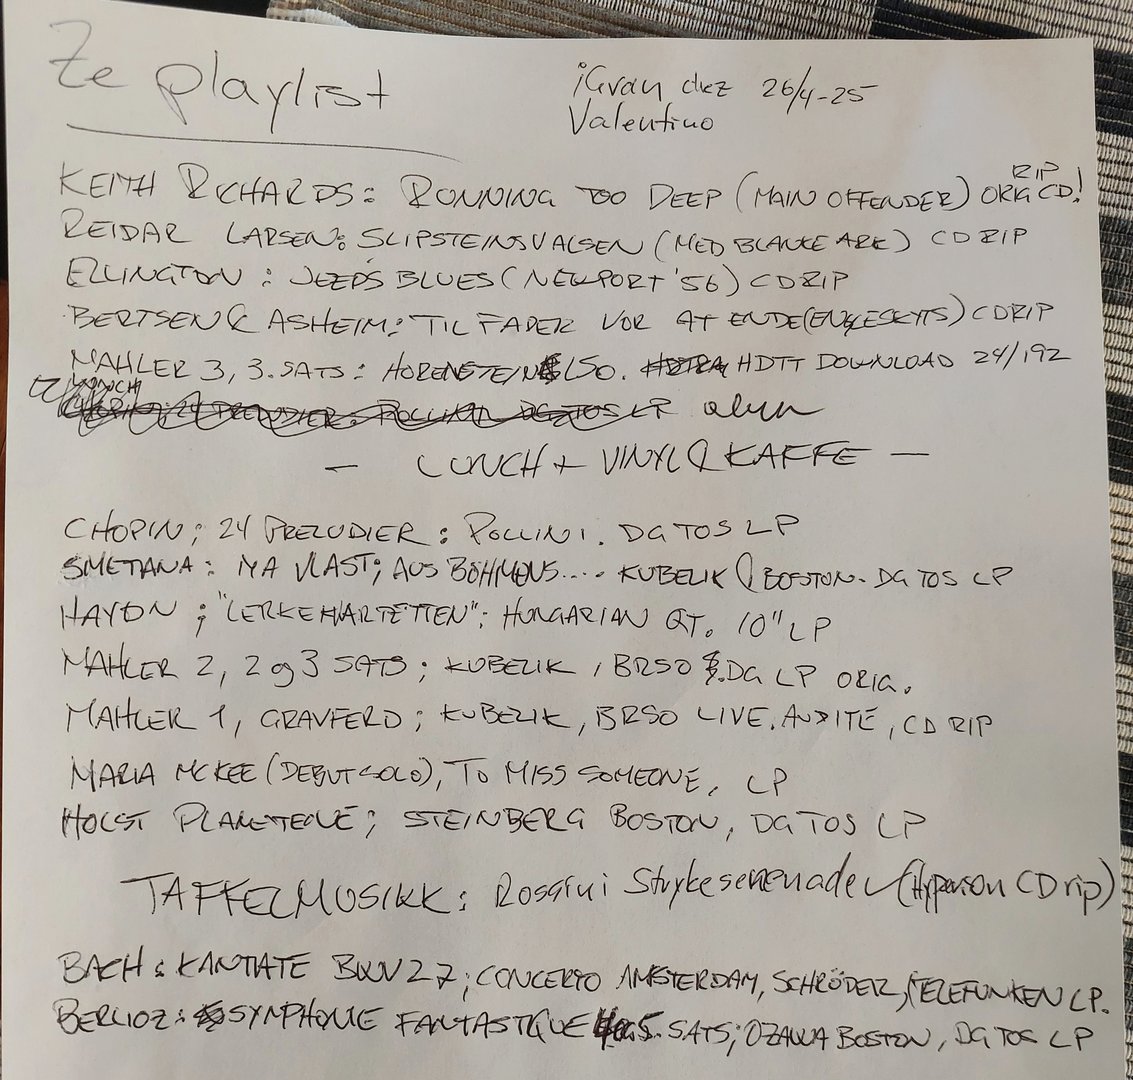 Ze playlist
¡Gran dez 26/4-25
Valentino
RIP
KEITH RICHARDS: RUNNING TOO DEEP (MAIN OFFENDER) ORIG CD!
REIDAR LARSEN: SLIPSTEINSVALSEN (MED BLANKE ARK) CD RIP
ELLINGTON: JEEP'S BLUES (NEWPORT '56) CD RIP
BERTSEN & ASHEIM: TIL FADER VOR AT ENDE (ENGLESKYTS) CD RIP
MAHLER 3, 3. SATS: HORENSTEIN LSO. HDTT DOWNLOAD 24/192
LP
— LUNCH + VINYL & KAFFE —
CHOPIN; 24 PRELUDIER: POLLINI. DG TOS LP
SMETANA: MA VLAST; AUS BÖHMENS.... KUBELIK BOSTON. DG TOS LP
HAYDN; "LERKEKVARTETTEN": HUNGARIAN QT. 10" LP
MAHLER 2, 2 og 3 SATS; KUBELIK, BRSO DG LP ORIG.
MAHLER 1, GRAVFERD; KUBELIK, BRSO LIVE. AUDITE, CD RIP
MARIA MCKEE (DEBUT SOLO), TO MISS SOMEONE, LP
HOLST PLANETENE; STEINBERG BOSTON, DG TOS LP
TAFFELMUSIKK: Rossini Strykeserenader (Hyperion CD rip)
BACH: KANTATE BWV 27; CONCERTO AMSTERDAM, SCHRÖDER, TELEFUNKEN LP.
BERLIOZ: SYMPHONIE FANTASTIQUE 5. SATS; OZAWA BOSTON, DG TOS LP